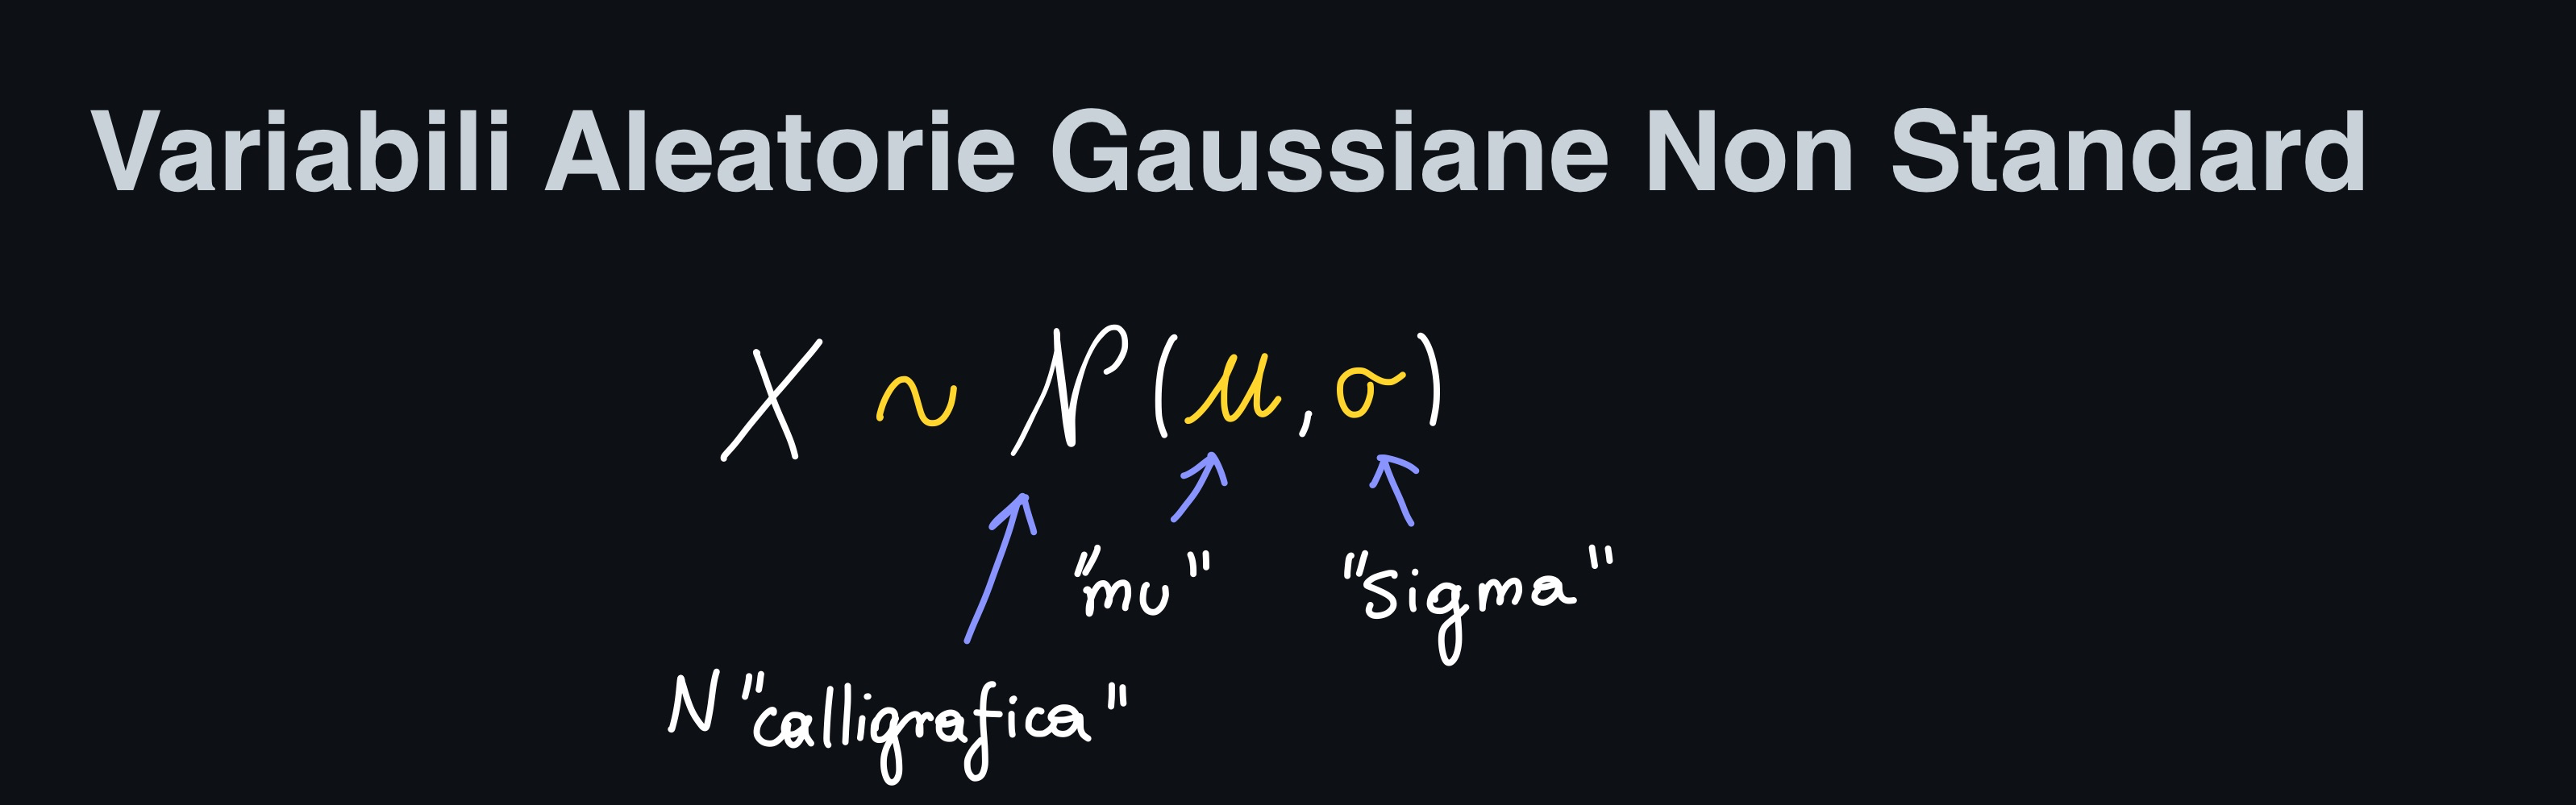 Variabili Aleatorie Gaussiane Non Standard
X ~ 𝒩(μ, σ)
"mu" "sigma"
N "calligrafica"